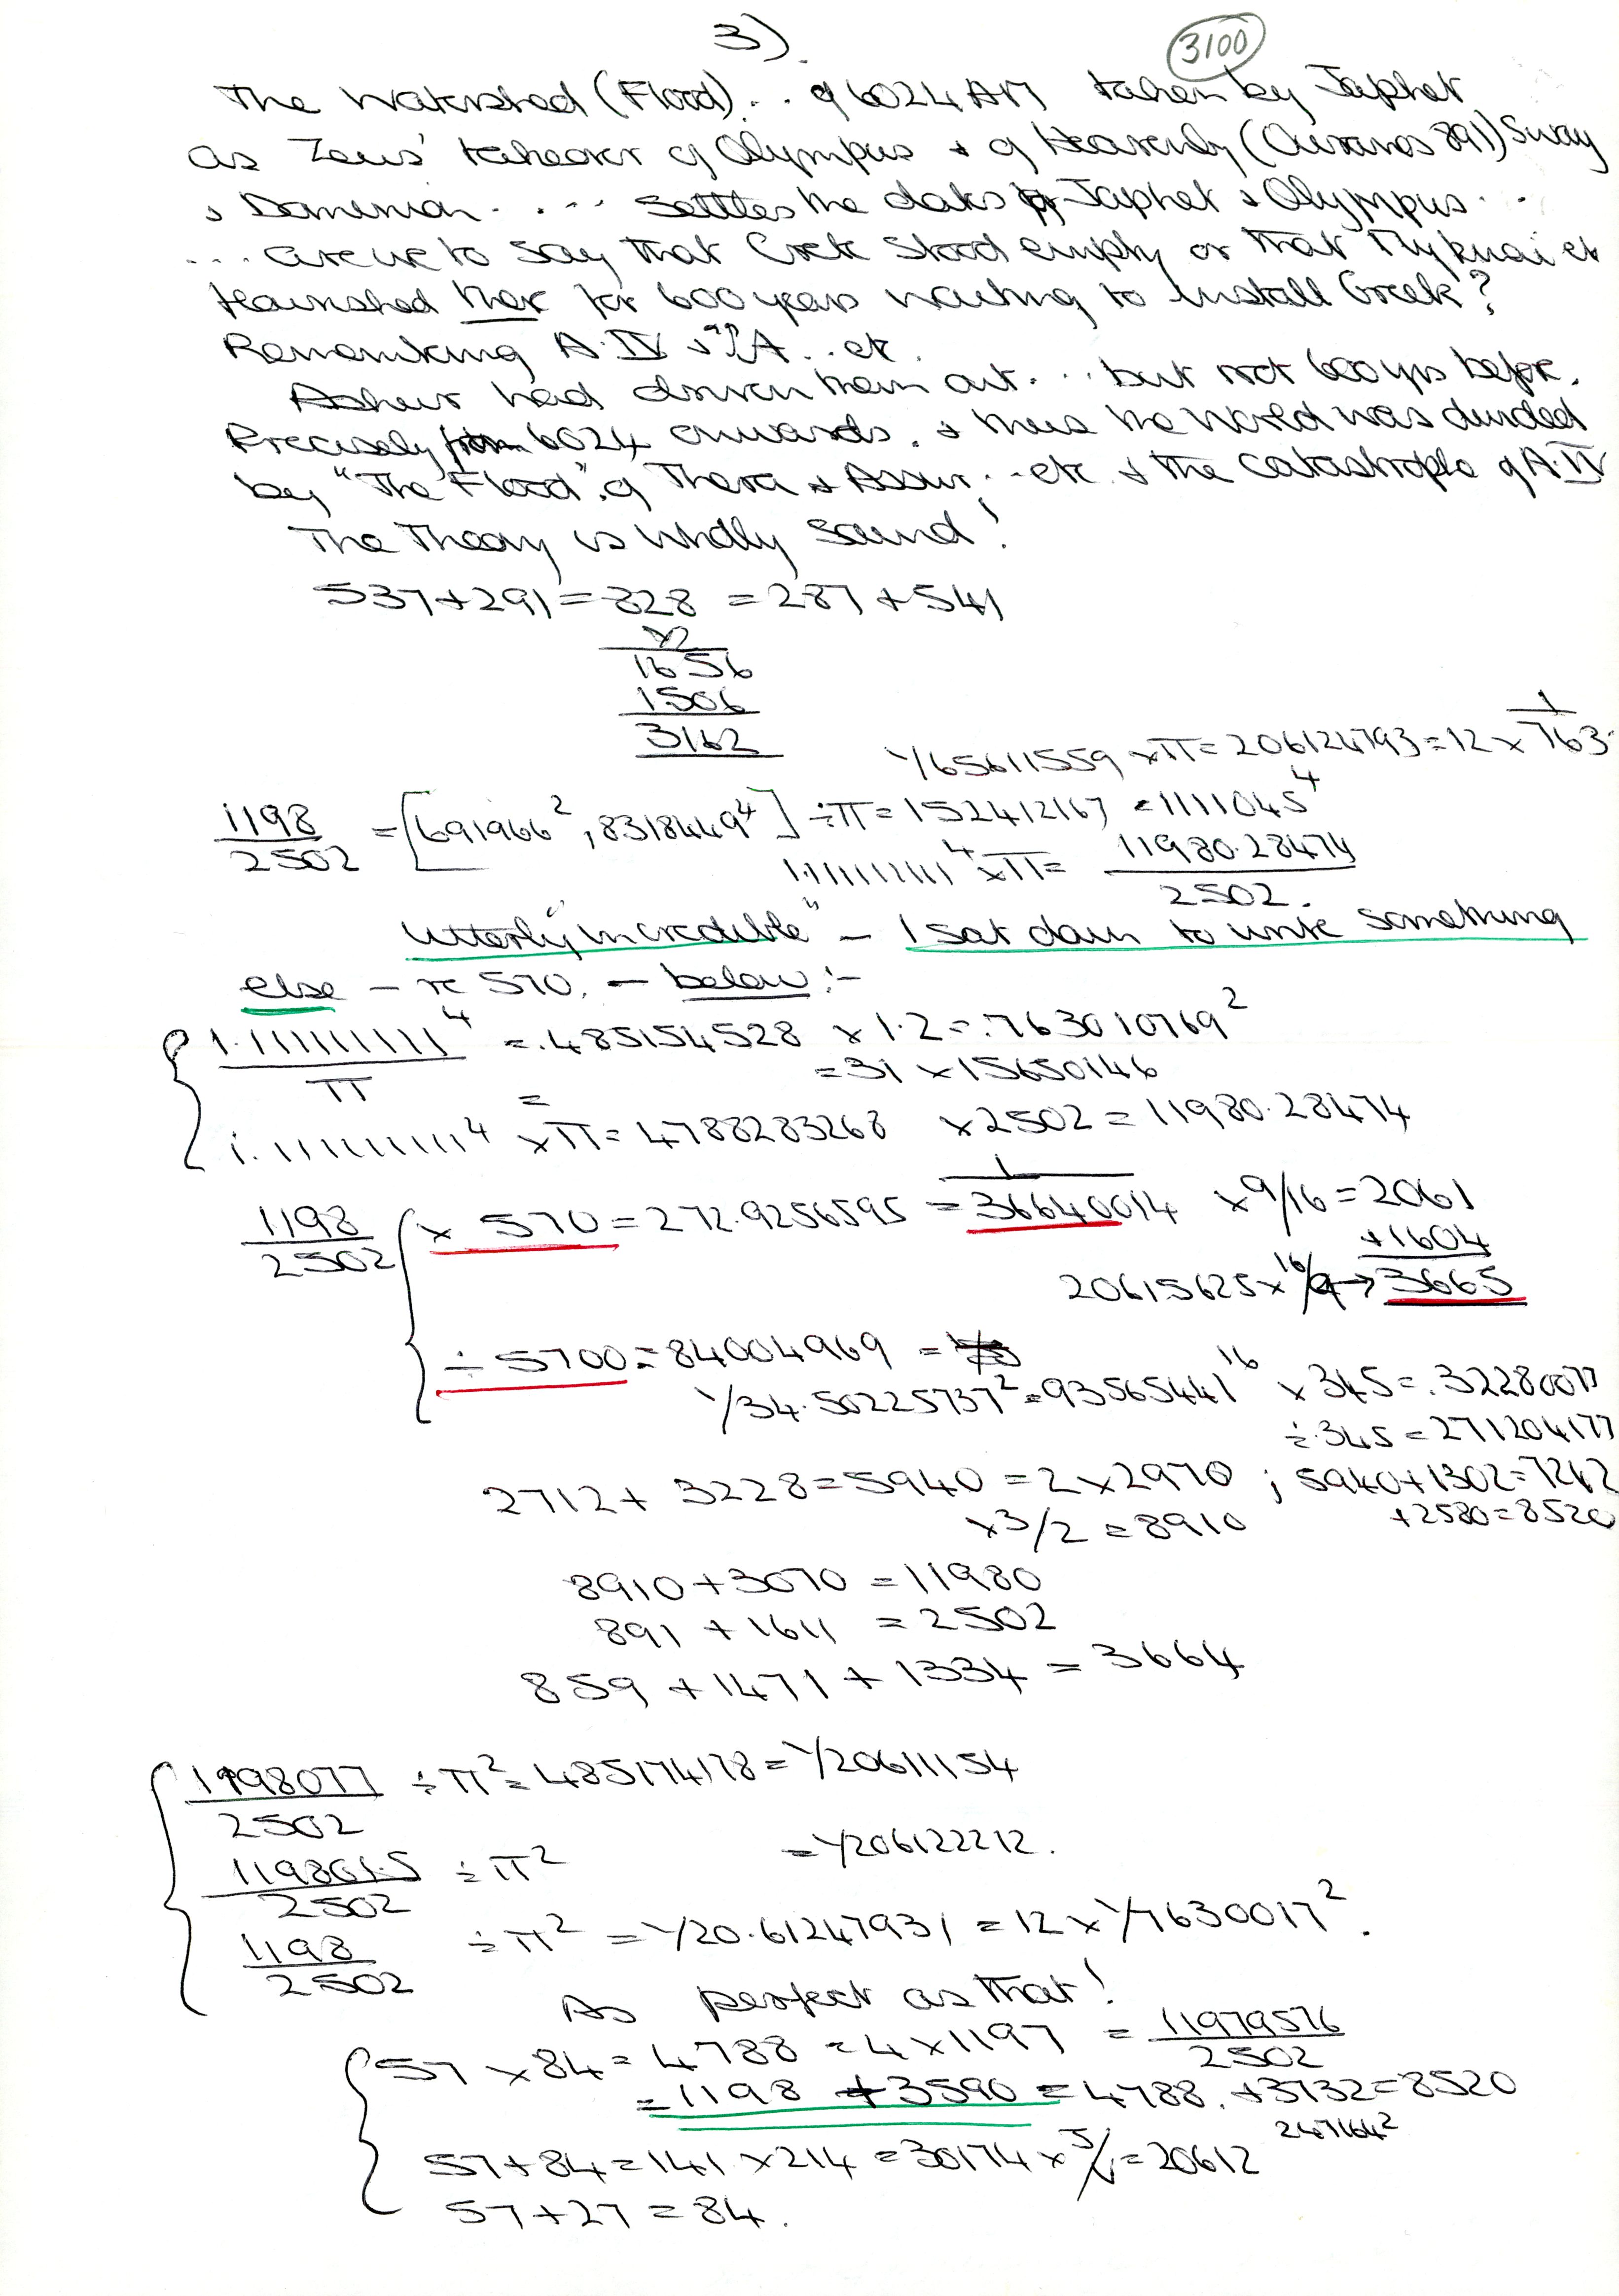 3).
3100
The Watershed (Flood) . . of 6024 AM taken by Japhet
as Zeus' takeover of Olympus & of Heavenly (Ouranos 891) Sway
& Dominion . . . . Settles the dates for Japhet & Olympus . .
. . . are we to say that Crete stood empty or that Myknai et
flourished there for 600 years waiting to install Greek?
Remembering A.IV & A . . etc.
Asshur had driven them out . . . but not 600 yrs before.
Precisely from 6024 onwards. & thus the World was divided
by "The Flood" of Thera & Assur . . etc & the catastrophe of A.IV
The Theory is Wholly Sound!
537+291=828 = 287+541
x2
1656
1506
3162
1/65611559 x π = 206124793 = 12 x 1/763.
1198/2502 = [691966², 8318449⁴] ÷π = 152412167 = 1111045⁴
1.111111111⁴ x π = 11980.28474/2502.
"Utterly incredible" – I sat down to write something
else – re 570. – below :-
1.111111111⁴/π = .485154528 x 1.2 = .763010769²
= 31 x 15650146
=
1.111111111⁴ x π = 4788283268 x 2502 = 11980.28474
1198/2502 x 570 = 272.9256595 = 1/36640014 x 9/16 = 2061
+1604
20615625 x 16/9 → 3665
÷ 5700 = 84004969 =
1/34.50225737² = 93565441¹⁶ x 345 = .32280077
÷.345 = 271204177
2712 + 3228 = 5940 = 2 x 2970 ; 5940+1302=7242
x 3/2 = 8910 +2580=8520
8910 + 3070 = 11980
891 + 1611 = 2502
859 + 1471 + 1334 = 3664
1198077/2502 ÷ π² = 485174178 = 1/20611154
119801.5/2502 ÷ π² = 1/206122212.
1198/2502 ÷ π² = 1/20.61247931 = 12 x 1/7630017².
As perfect as that!
57 x 84 = 4788 = 4 x 1197 = 11979576/2502
= 1198 + 3590 = 4788. + 3732 = 8520
247164²
57+84 = 141 x 214 = 30174 x = 20612
57+27 = 84.